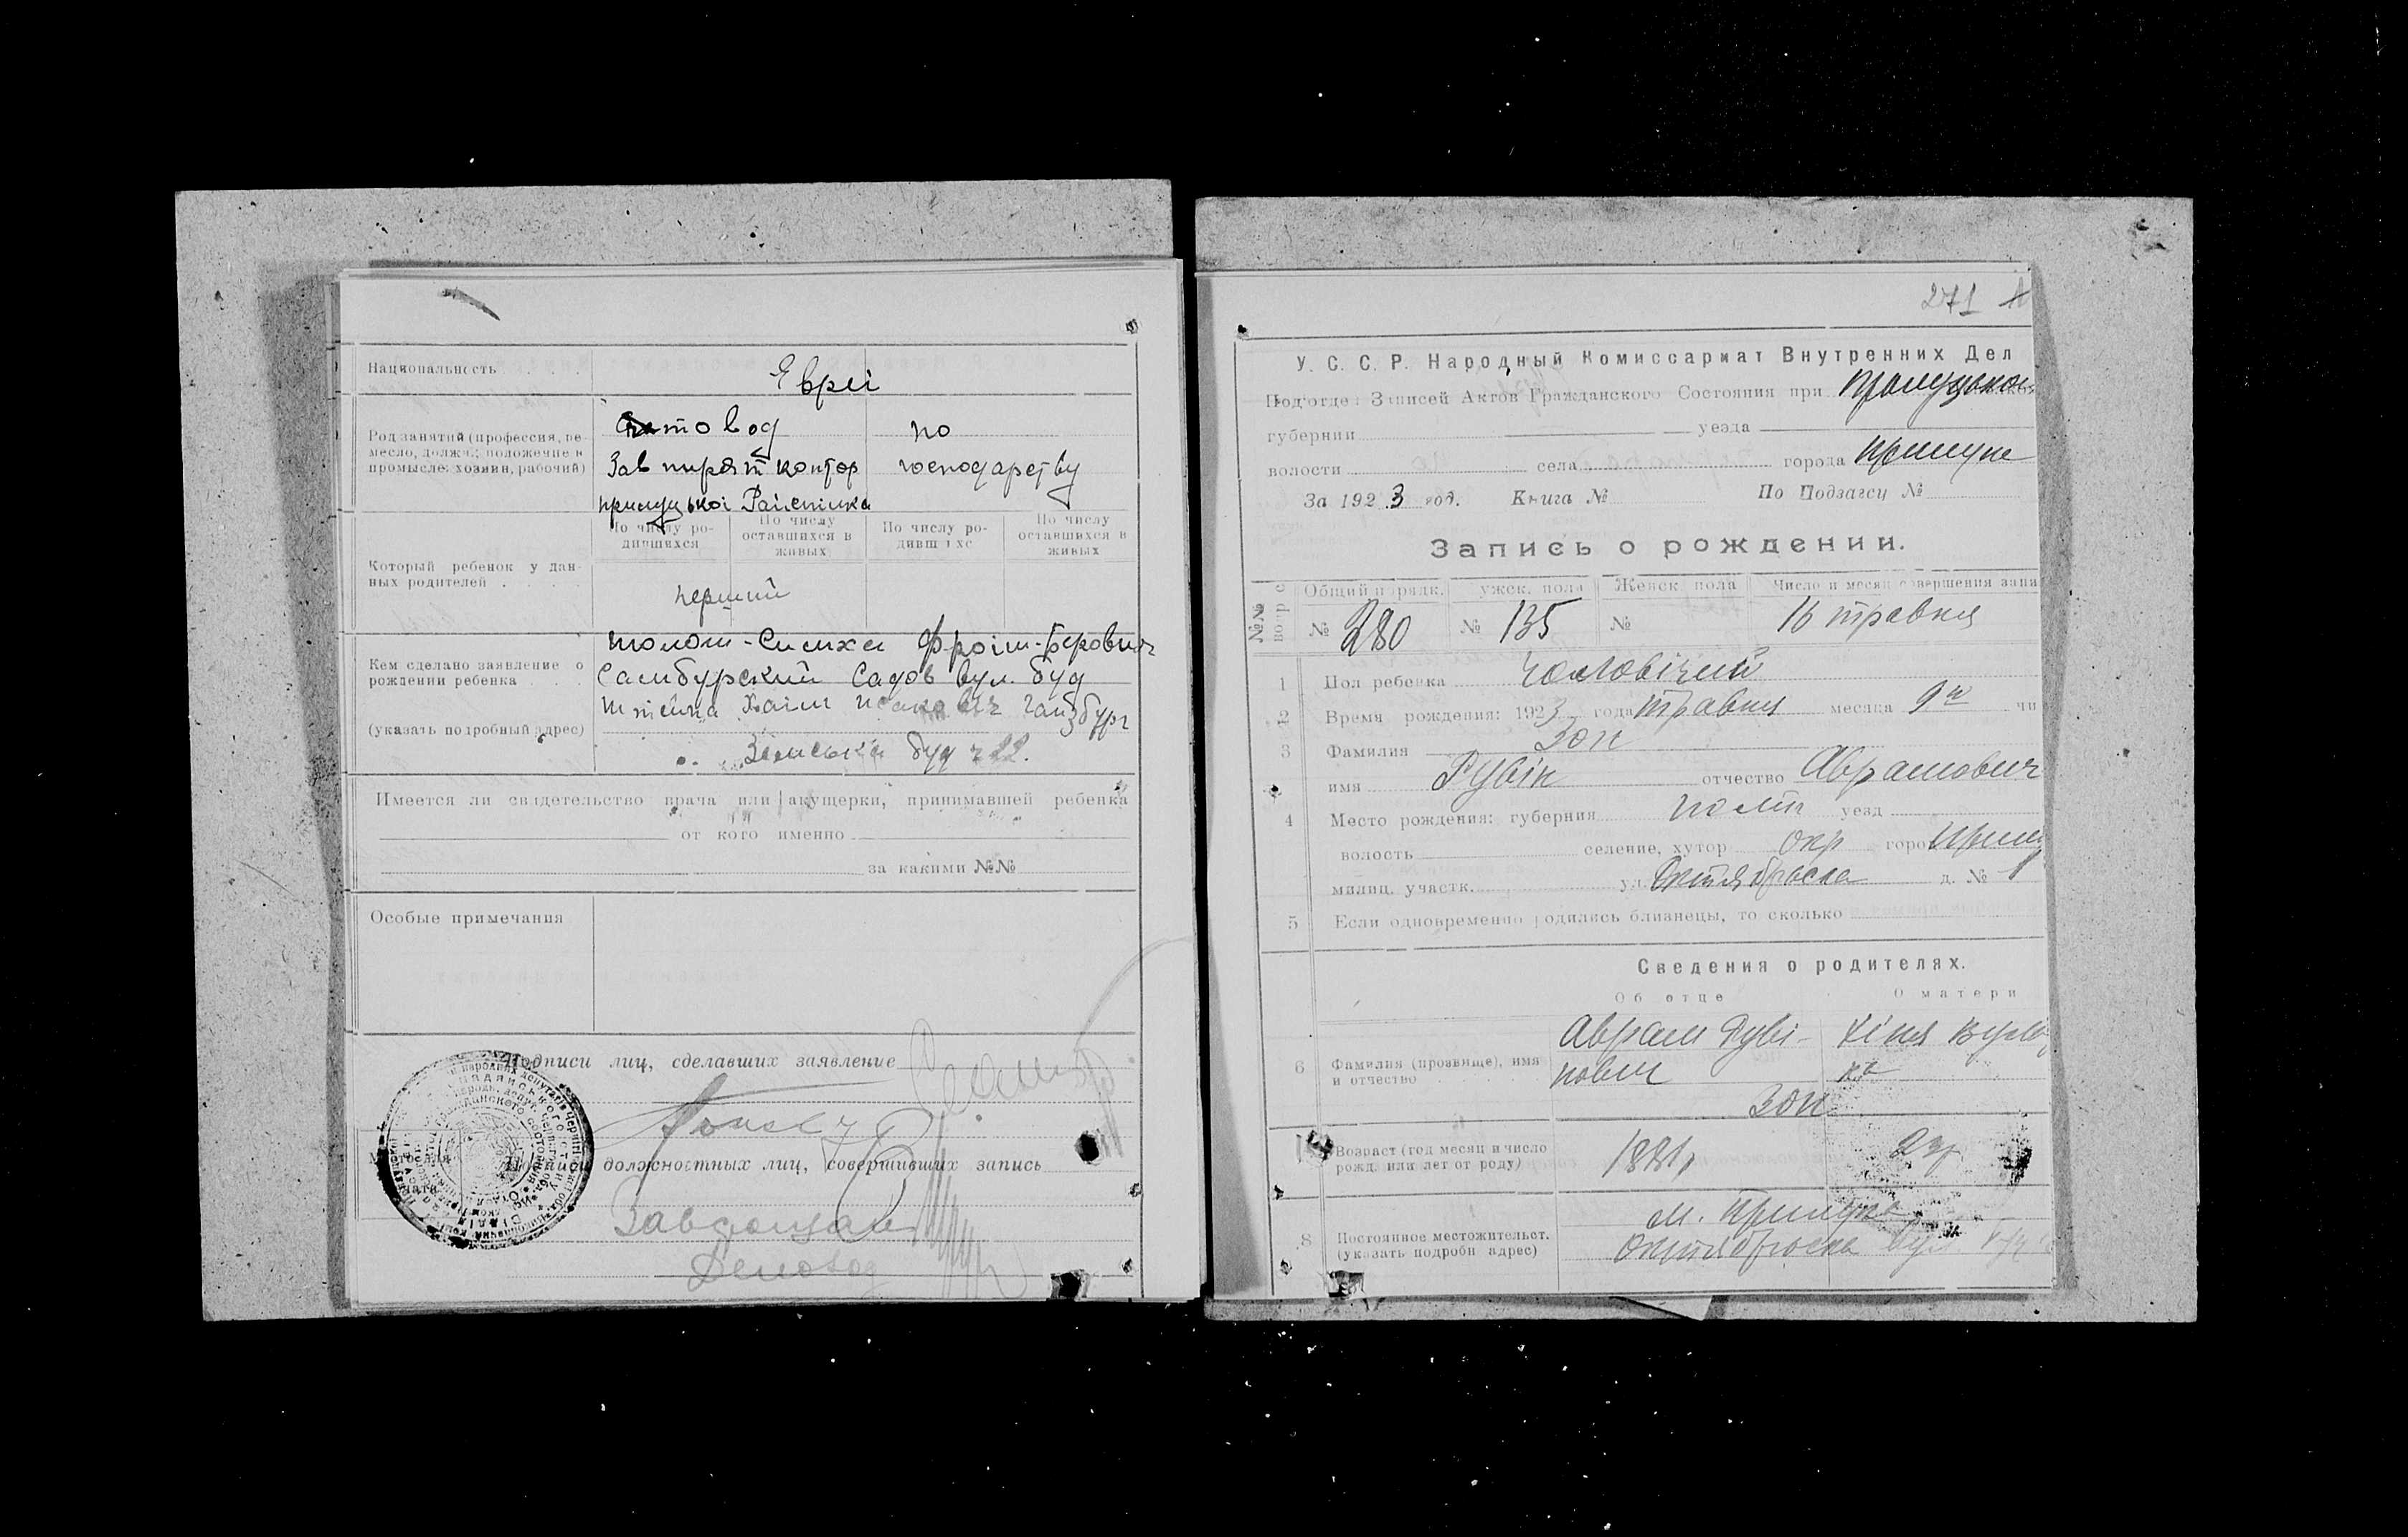 Национальность
Євреї
Род занятий (профессия, ре-
месло, должн., положение в
промысле: хозяин, рабочий)
по
Зав
контор
господарству
прилуцької
По числу ро-
дившихся
По числу
оставшихся в
живых
По числу ро-
дивш ихс
По числу
оставшихся в
живых
Который ребенок у дан-
ных родителей
перший
Кем сделано заявление о
рождении ребенка
(указать подробный адрес)
Шолом-Симха Фроім-Берович
Самбурский Садов вул. буд
Хаім Ісакович Гайзбург
Земська буд ч 22.
Имеется ли свидетельство врача или акушерки, принимавшей ребенка
от кого именно
за какими №№
Особые примечания
Подписи лиц, сделавших заявление
Подписи должностных лиц, совершивших запись
Завідующий
Деловод
271
У. С. С. Р. Народный Комиссариат Внутренних Дел
Под'отдел Записей Актов Гражданского Состояния при Прилуцьком
губернии уезда
волости села города Прилуки
За 1923 год. Книга № По Подзагсу №
Запись о рождении.
Общий порядк. мужск. пола Женск. пола Число и месяц совершения запи
№ 280 № 135 № 16 травня
1 Пол ребенка Чоловічий
2 Время рождения: 1923 года травня месяца 9го чи
3 Фамилия Зон
имя Рубін отчество Абрамович
4 Место рождения: губерния Полт уезд
волость селение, хутор окр горо Прилу
милиц. участк. ул. Октябрьска д. № 1
5 Если одновременно родились близнецы, то сколько
Сведения о родителях.
Об отце О матери
6 Фамилия (прозвище), имя
и отчество
Абрам Рубі-
нович
Хіня
Зон
Возраст (год месяц и число
рожд. или лет от роду)
1881 р
23 р
8 Постоянное местожительст.
(указать подробн адрес)
м. Прилуки
Октябрьска вул